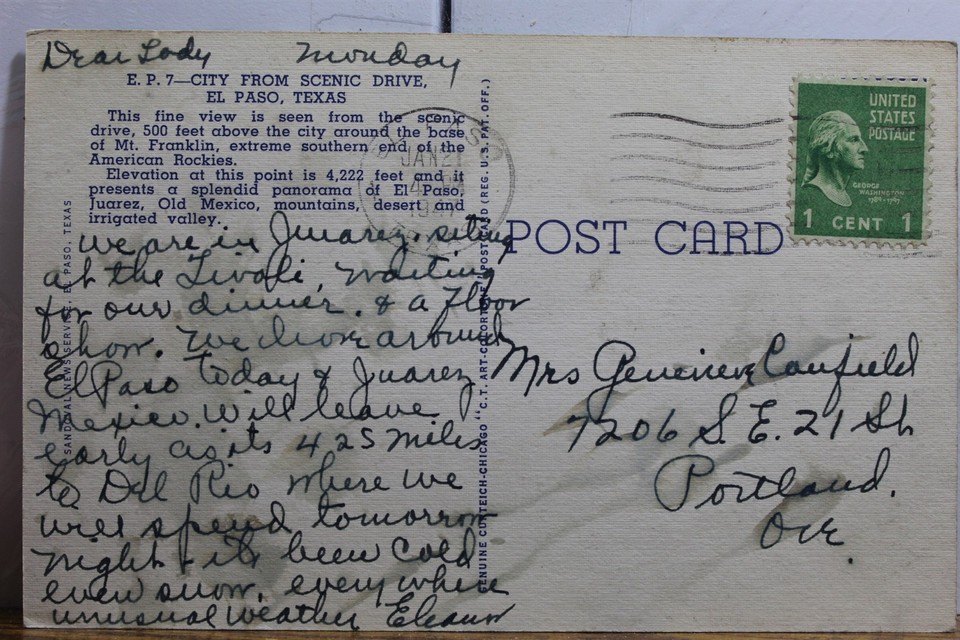 Dear Lody Monday
E. P. 7—CITY FROM SCENIC DRIVE,
EL PASO, TEXAS
This fine view is seen from the scenic
drive, 500 feet above the city around the base
of Mt. Franklin, extreme southern end of the
American Rockies.
Elevation at this point is 4,222 feet and it
presents a splendid panorama of El Paso,
Juarez, Old Mexico, mountains, desert and
irrigated valley.
We are in Juarez, siting
at the Tivoli, waiting
for our dinner. & a floor
show. We drove around
El Paso today & Juarez
Mexico. Will leave
early as its 425 miles
to Del Rio where we
will spend tomorrow
night - its been cold
even snow. everywhere
unusual weather Eleanor
SANDOVAL NEWS SERVICE, EL PASO, TEXAS
GENUINE CURTEICH-CHICAGO "C.T. ART-COLORTONE" POST CARD (REG. U.S. PAT. OFF.)
JAN 21
UNITED
STATES
POSTAGE
GEORGE
WASHINGTON
1789-1797
1 CENT 1
POST CARD
Mrs Genevieve Canfield
7206 S. E. 21 St
Portland.
Ore.